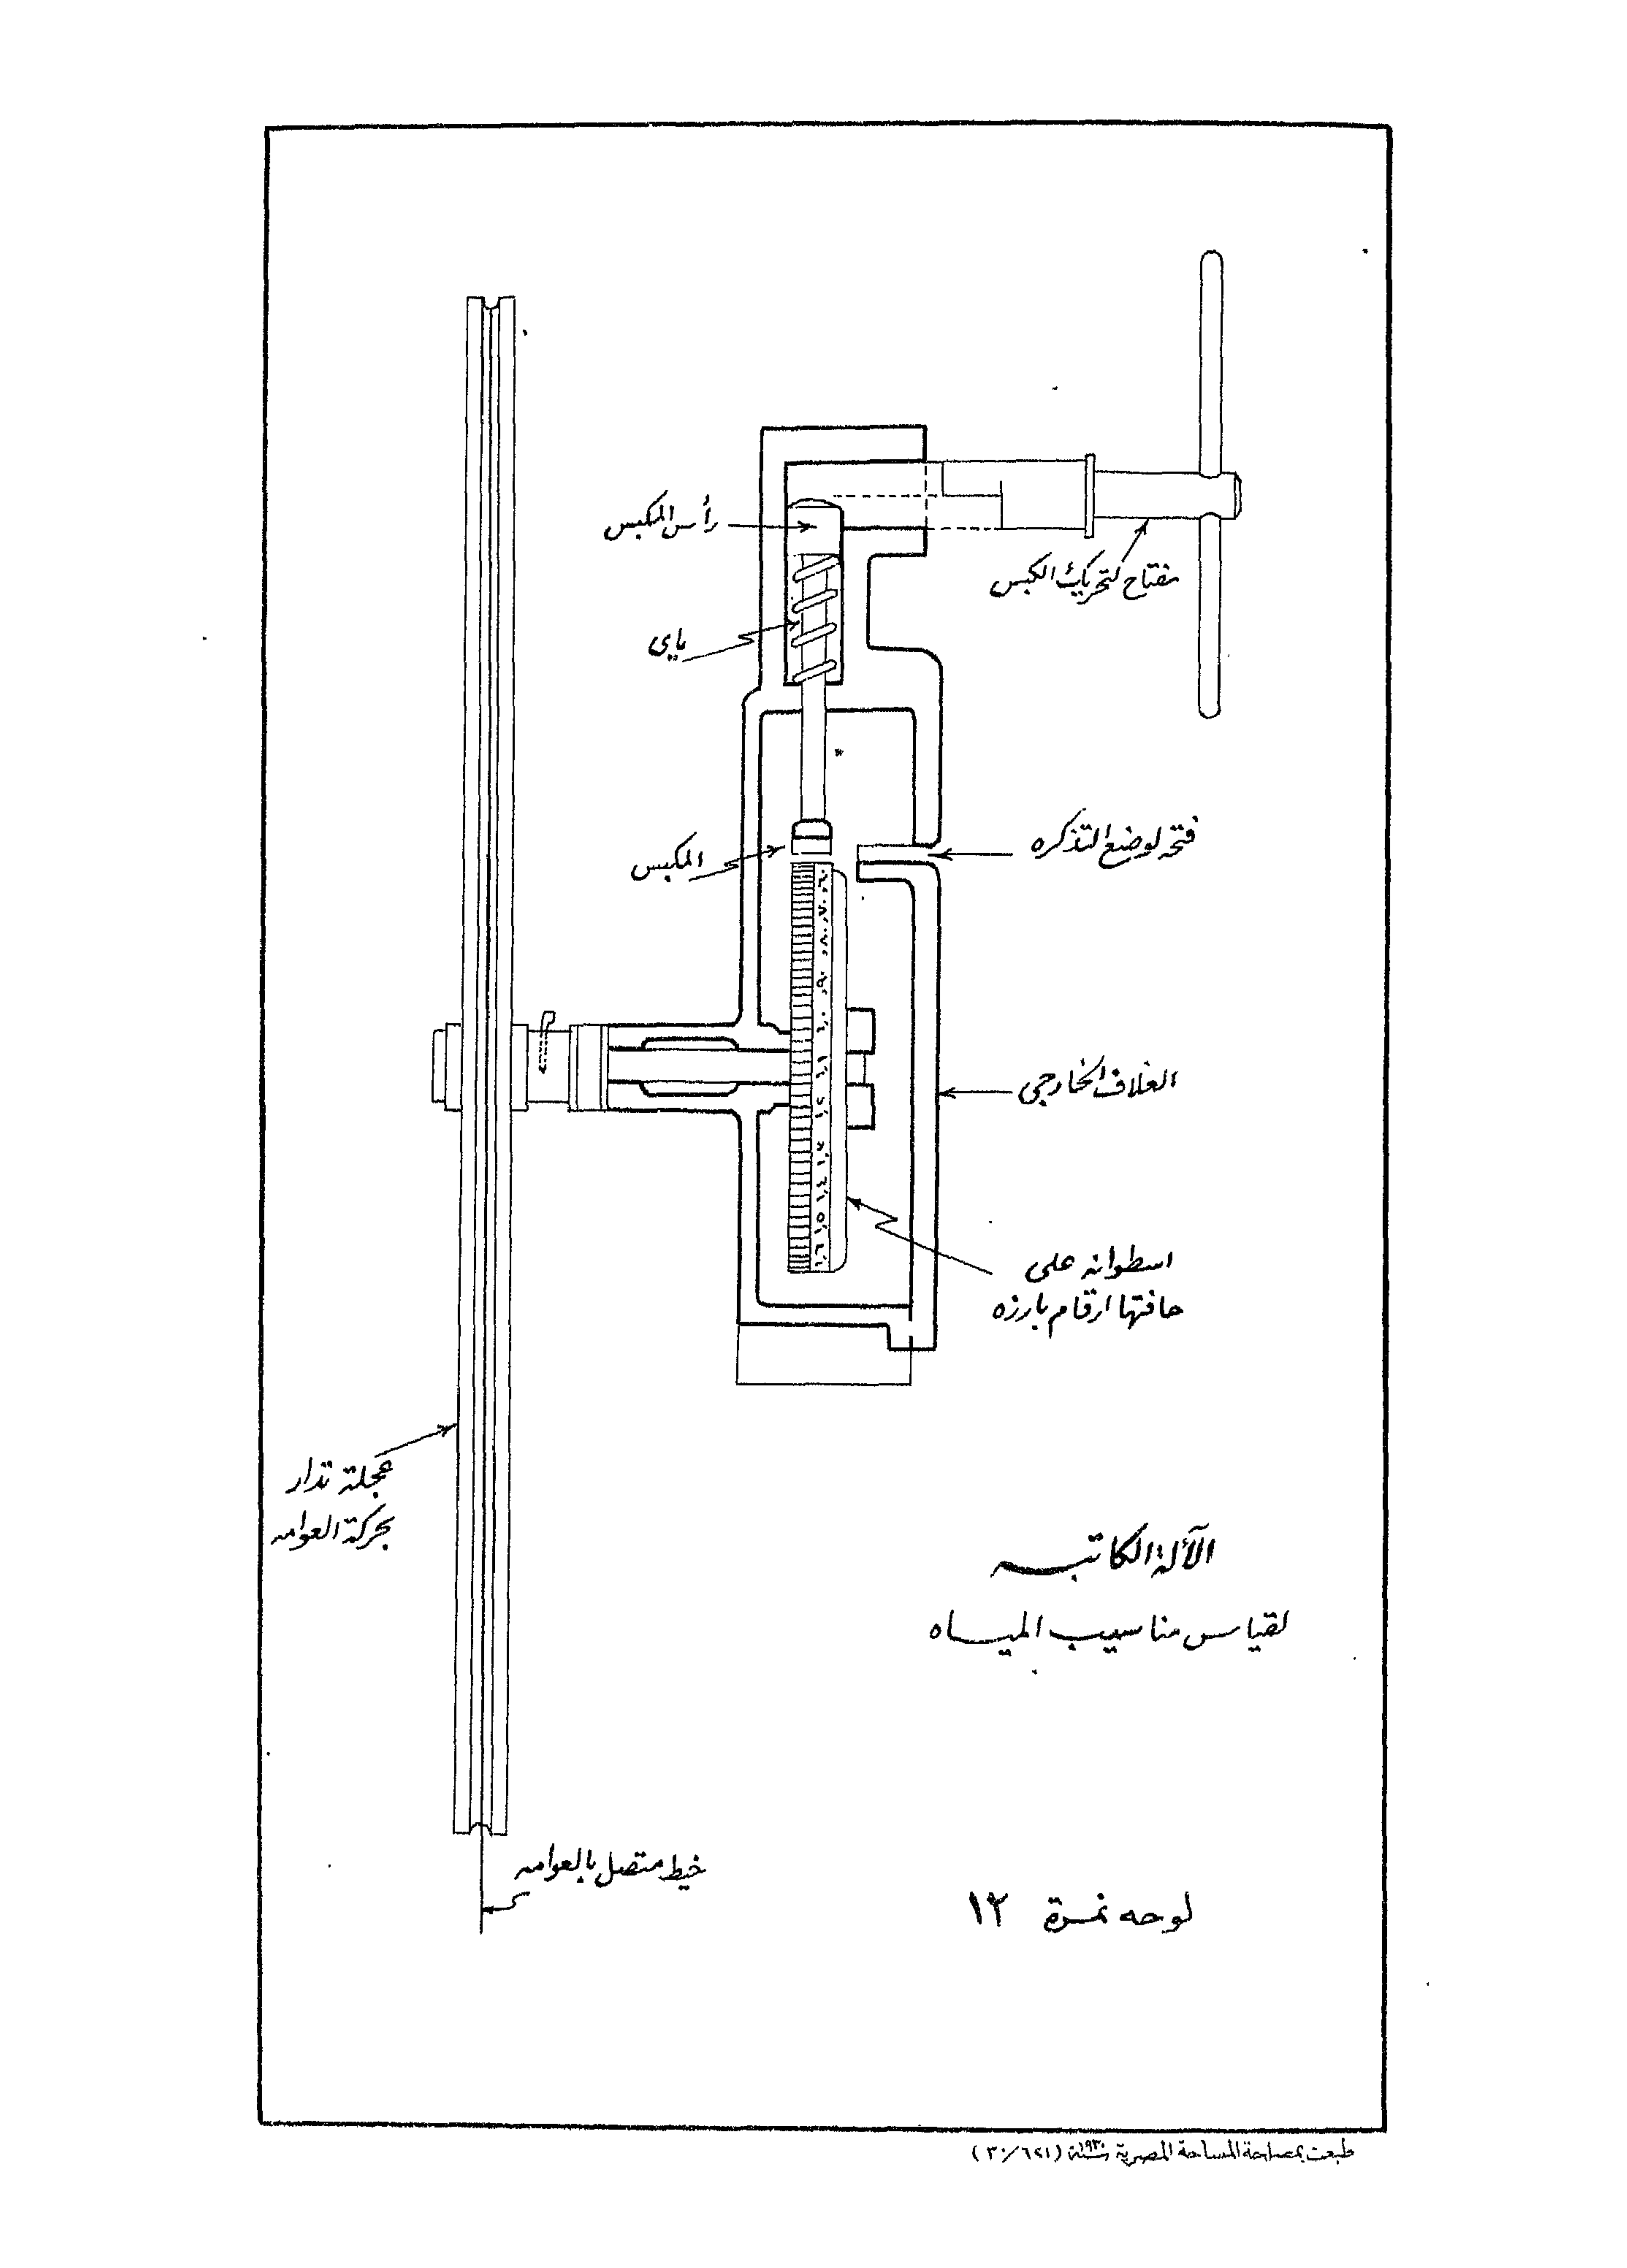 رأس المكبس
مفتاح لتحريك الكبس
ياى
فتحه لوضع التذكره
المكبس
الغلاف الخارجى
اسطوانه على
حافتها ارقام بارزه
عجلة تدار
بحركة العوامه
الآلة الكاتبه
لقياس مناسيب المياه
خيط متصل بالعوامه
لوحه نمرة ١٢
طبعت بمصلحة المساحة المصرية سنة ١٩٣٠ (٣٠/٦٢١)